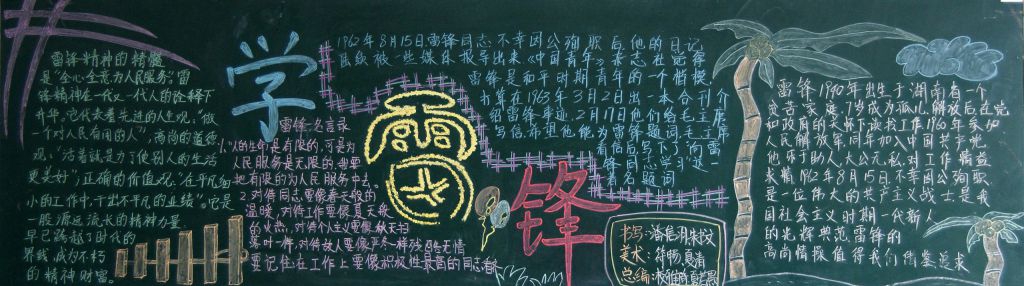 学
雷
锋
雷锋精神的精髓
是"全心全意为人民服务"。雷
锋精神在一代又一代人的诠释下
升华。它代表着先进的人生观："做
一个对人民有用的人"；高尚的道德
观："活着就是为了使别人的生活
更美好"；正确的价值观："在平凡细
小的工作中，干出不平凡的业绩"。它是
一股源远流长的精神力量
早已跨越了时代的
界线，成为不朽
的精神财富。
雷锋名言录
1.人的生命是有限的，可是为
人民服务是无限的，我要
把有限的为人民服务中去。
2.对待同志要像春天般的
温暖，对待工作要像夏天般
的火热，对待个人主义要像秋天扫
落叶一样，对待敌人要像严冬一样残酷无情
要记住：在工作上要像积极性最高的同志看齐
1962年8月15日雷锋同志不幸因公殉职后他的日记
陆续被一些媒体报导出来《中国青年》杂志社觉得
雷锋是和平时期青年的一个楷模
打算在1963年3月2日出一本合刊介
绍雷锋事迹。2月17日他们给毛主席
写信希望他能为雷锋题词毛主席
看信后写下了"向雷
锋同志学习"这
著名题词
书写：
美术：
总编：
雷锋1940年出生于湖南省一个
贫苦家庭，7岁成为孤儿，解放后在党
和政府的关怀下读找工作1960年参加
人民解放军同年加入中国共产党
他乐于助人，大公无私，对工作精益
求精1962年8月15日不幸因公殉职
是一位伟大的共产主义战士，是我
国社会主义时期一代新人
的光辉典范，雷锋的
高尚情操值得我们借鉴追求